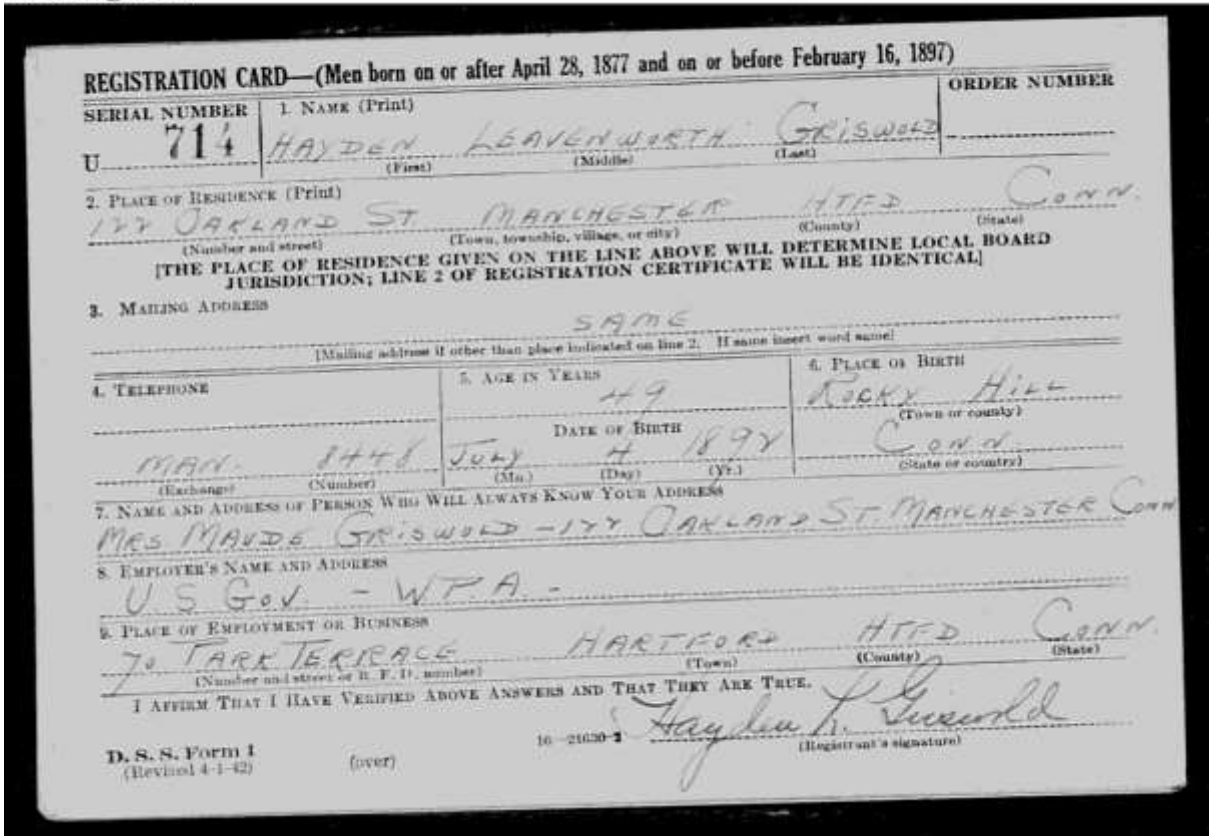 REGISTRATION CARD—(Men born on or after April 28, 1877 and on or before February 16, 1897)
SERIAL NUMBER 1. NAME (Print) ORDER NUMBER
U 714 HAYDEN LEAVENWORTH GRISWOLD
(First) (Middle) (Last)
2. PLACE OF RESIDENCE (Print)
122 OAKLAND ST. MANCHESTER HTFD CONN.
(Number and street) (Town, township, village, or city) (County) (State)
[THE PLACE OF RESIDENCE GIVEN ON THE LINE ABOVE WILL DETERMINE LOCAL BOARD
JURISDICTION; LINE 2 OF REGISTRATION CERTIFICATE WILL BE IDENTICAL]
3. MAILING ADDRESS
SAME
[Mailing address if other than place indicated on line 2. If same insert word same]
4. TELEPHONE 5. AGE IN YEARS 6. PLACE OF BIRTH
49 ROCKY HILL
DATE OF BIRTH (Town or county)
MAN. 8448 JULY 4 1892 CONN.
(Exchange) (Number) (Mo.) (Day) (Yr.) (State or country)
7. NAME AND ADDRESS OF PERSON WHO WILL ALWAYS KNOW YOUR ADDRESS
MRS MAUDE GRISWOLD - 122 OAKLAND ST. MANCHESTER CONN
8. EMPLOYER'S NAME AND ADDRESS
U S GOV. - W.P.A. -
9. PLACE OF EMPLOYMENT OR BUSINESS
70 PARK TERRACE HARTFORD HTFD CONN.
(Number and street or R. F. D. number) (Town) (County) (State)
I AFFIRM THAT I HAVE VERIFIED ABOVE ANSWERS AND THAT THEY ARE TRUE.
Hayden L. Griswold
D. S. S. Form 1 16—21630-2 (Registrant's signature)
(Revised 4-1-42) (over)